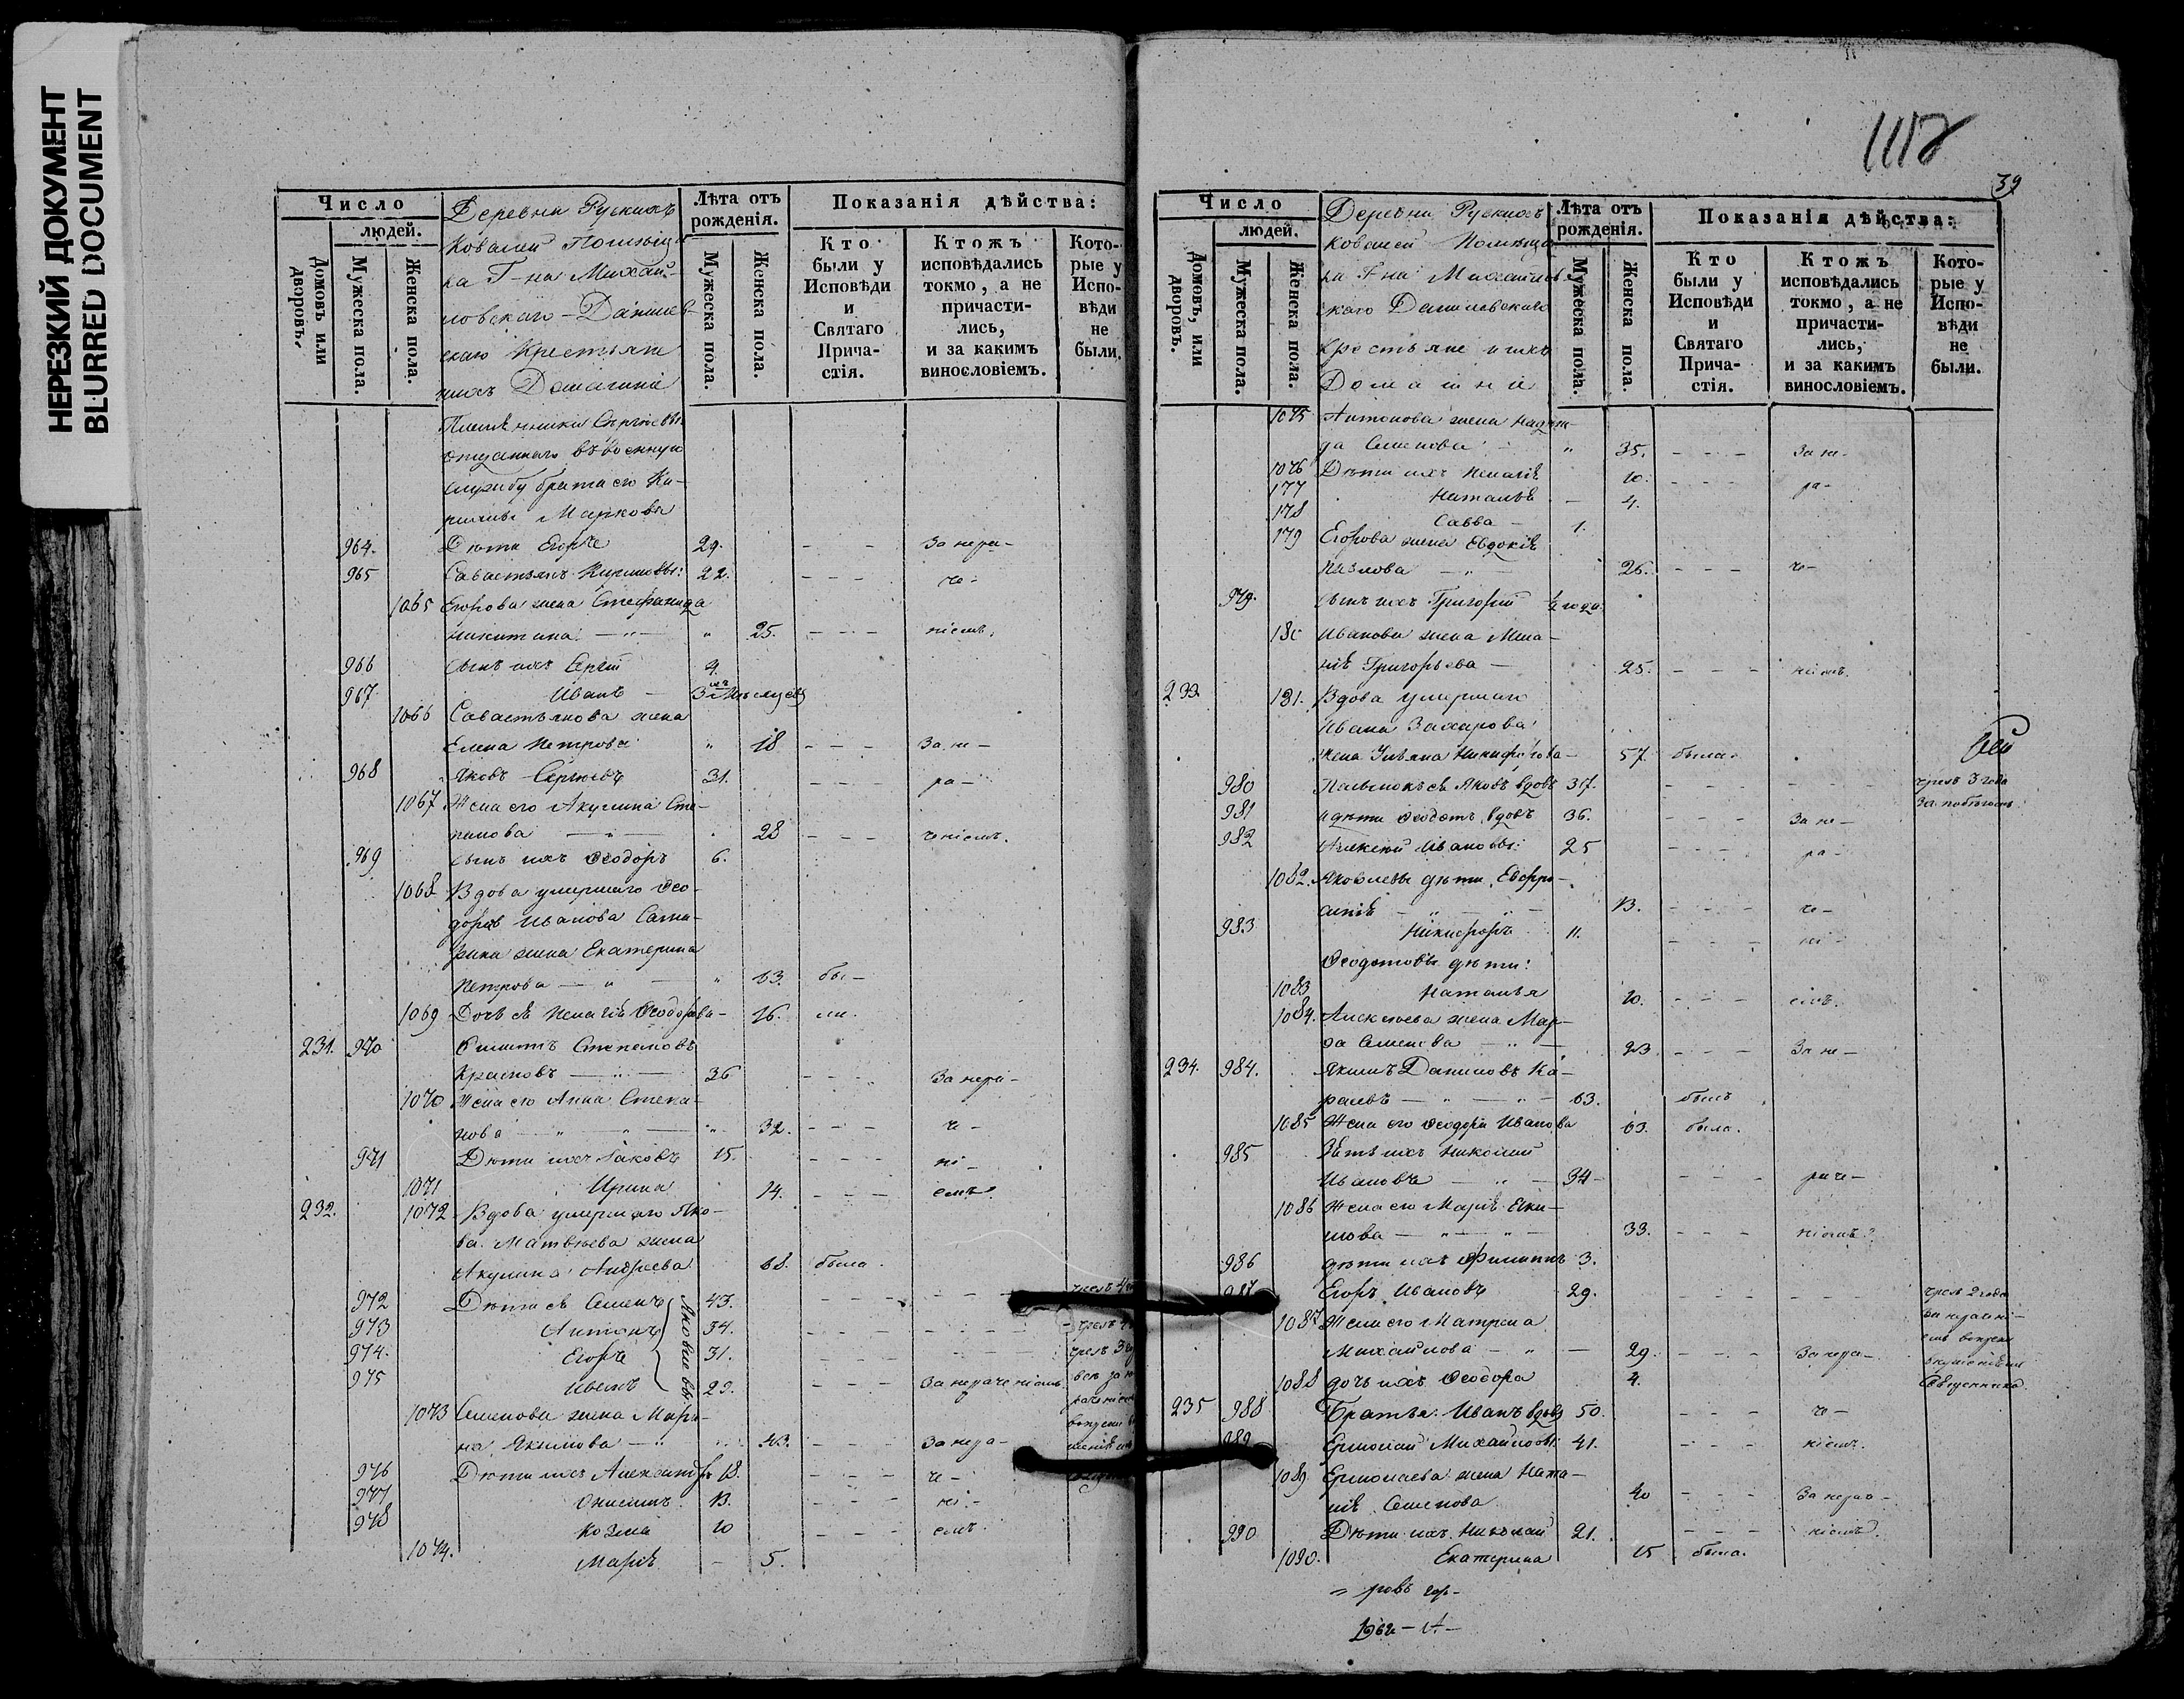 НЕРЕЗКИЙ ДОКУМЕНТ
BLURRED DOCUMENT
Число
людей.
Домовъ или дворовъ.
Мужеска пола.
Женска пола.
Деревни Рускихъ
Ковалей Помѣщи-
ка Г-на Михай-
ловскаго-Данилев-
скаго Крестьяне
ихъ Домашніе
Лѣта отъ рожденія.
Мужеска пола.
Женска пола.
Показанія дѣйства:
Кто были у Исповѣди и Святаго Прича-стія.
Ктожъ исповѣдались токмо, а не причасти-лись, и за какимъ винословіемъ.
Кото-рые у Испо-вѣди не были.
Племѣнники Сергіевы
отданнаго въ военную
службу брата его Ки-
рилы Маркова
964. Дѣти Егоръ 29. - - За нера-
965 Савастьянъ Кириловы: 22. - - - че-
1065 Егорова жена Стефанида
Никитина — " — " 25. - - - ніемъ.
966 Сынъ ихъ Сергій 4
967. Иванъ - 3 мѣсяцевъ
1066 Савастьянова жена
Елена Петрова " 18 - - - За не-
968 Яковъ Сергіевъ 31. - - - ра-
1067 Жена его Акулина Сте-
панова — " — 28 - - - ченіемъ.
969 Сынъ ихъ Ѳеодоръ 6.
1068 Вдова умершаго Ѳео-
дора Иванова
жена Екатерина
Петрова — " — " 63. бы-
1069 Дочь ея Пелагія Ѳеодорова- 26. ли.
231. 970 Филиппъ Степановъ
Красновъ — " — 36 - - - За нера-
1070 Жена его Анна Степа-
нова " " — " 32. - - - че-
971 Дѣти ихъ Іаковъ 15. - - - ні-
1071 Ирина 14. - - - емъ.
232. 1072 Вдова умершаго Яко-
ва Матвѣева жена
Акулина Андреева 68. была.
972 Дѣти ея Семенъ 43. - - - чрезъ 4
973 Антонъ 34. - - - чрезъ
974. Егоръ 31. - - - чрезъ 3
975 Иванъ 29. - - - За нераченіемъ.
Яковлевы
1073 Семенова жена Марѳ-
на Якимова — " " 43. - - - За нера-
976 Дѣти ихъ Александръ 18. - - - че-
977 Онисимъ 13. - - - ні-
978 Козма 10 - - - емъ.
1074. Марія - 5.
1118
39
Число
людей.
Домовъ, или дворовъ.
Мужеска пола.
Женска пола.
Деревни Рускихъ
Ковалей Помѣщи-
ка Г-на Михайлов-
скаго Данилевскаго
Крестьяне и ихъ
Домашніе
Лѣта отъ рожденія.
Мужеска пола.
Женска пола.
Показанія дѣйства:
Кто были у Исповѣди и Святаго Прича-стія.
Ктожъ исповѣдались токмо, а не причасти-лись, и за какимъ винословіемъ.
Кото-рые у Испо-вѣди не были.
1075 Антонова жена Надеж-
да Семенова " 35. - - - За не-
1076 Дѣти ихъ Пелагія 10. - - - ра-
177 Наталья - 4.
178 Савва - 1.
179 Егорова жена Евдокія
Павлова — " — 26. - - - че-
979. Сынъ ихъ Григорій ½ года.
180 Иванова жена Мела-
нія Григорьева — 25. - - - ніемъ.
233 181. Вдова умершаго
Ивана Захарова
жена Ульяна Никифорова- 57. была.
980 Пасынокъ ея Яковъ вдовъ 37. - - - чрезъ 3 года
981 и дѣти Ѳеодотъ вдовъ 36. - - - За не-
982 Алексѣй Ивановы: 25 - - - ра-
1082. Яковлевы дѣти, Евфро-
синія — " — " — 13. - - - че-
983 Никифоръ 11. - - - ні-
Ѳеодотовы дѣти:
1083 Наталья 10. - - - емъ.
1084. Алексѣева жена Мар-
ѳа Семенова — " — 23. - - - За не-
234. 984. Якимъ Даниловъ Ко-
ралевъ — " — " — 63. былъ
1085 Жена его Ѳеодора Иванова 63. была.
985 Зять ихъ Николай
Ивановъ — " — 34 - - - - раче-
1086 Жена его Марія Яки-
мова — " — " — 33. - - - ніемъ.
986 дѣти ихъ Филиппъ 3.
987 Егоръ Ивановъ 29. - - - чрезъ 2 года
1087 Жена его Матрена
Михайлова — " — 29. - - - За нера-
1088 дочь ихъ Ѳеодора 4.
235 988 Братья: Иванъ вдовъ 50. - - - че-
989 Ермолай Михайловы: 41. - - - ніемъ.
1089 Ермолаева жена Ната-
лія Семенова 40 - - - За нера-
990 Дѣти ихъ Николай 21. - - - ніемъ.
1090. Екатерина 15 была.